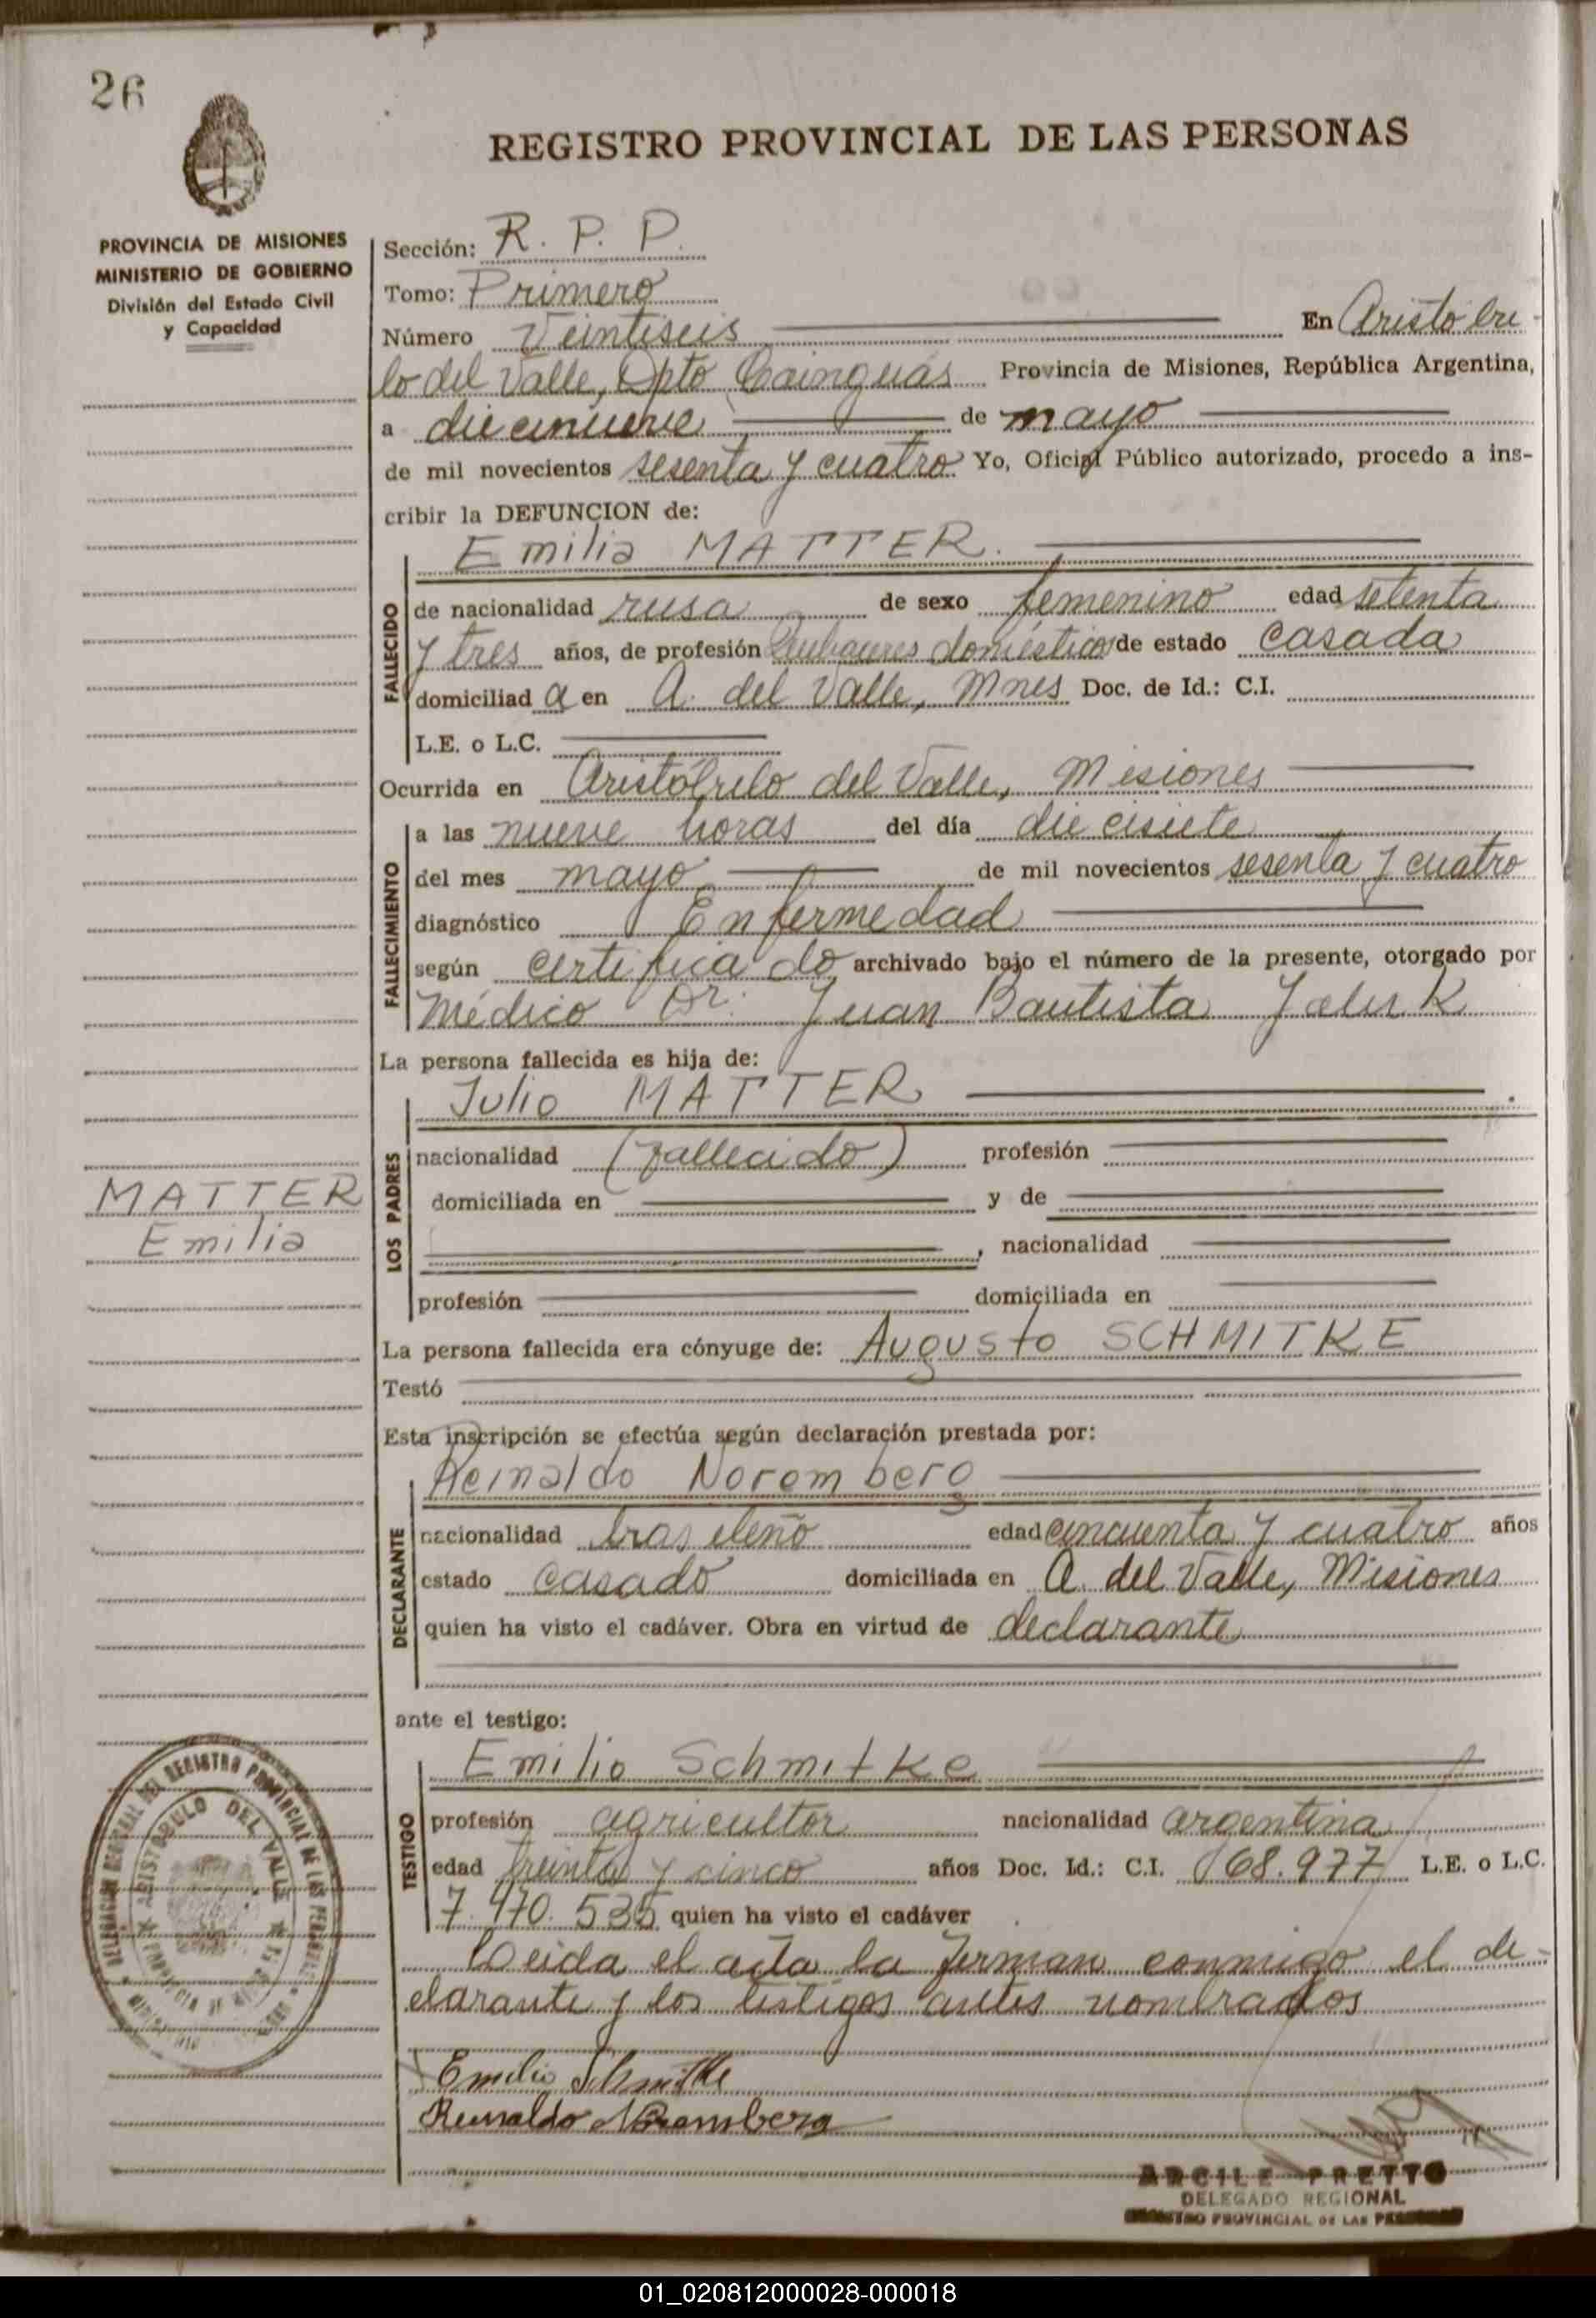 26
REGISTRO PROVINCIAL DE LAS PERSONAS
PROVINCIA DE MISIONES
MINISTERIO DE GOBIERNO
División del Estado Civil
y Capacidad
Sección: R. P. P.
Tomo: Primero
Número Veintiseis En Aristóbu-
lo del Valle, Dpto Cainguás Provincia de Misiones, República Argentina,
a diecinueve de mayo
de mil novecientos sesenta y cuatro Yo, Oficial Público autorizado, procedo a ins-
cribir la DEFUNCION de:
Emilia MATTER.
FALLECIDO
de nacionalidad rusa de sexo femenino edad setenta
y tres años, de profesión Quehaceres domésticos de estado casada
domiciliad a en A. del Valle, Mnes Doc. de Id.: C.I.
L.E. o L.C.
Ocurrida en Aristóbulo del Valle, Misiones
FALLECIMIENTO
a las nueve horas del día diecisiete
del mes mayo de mil novecientos sesenta y cuatro
diagnóstico Enfermedad
según certificado archivado bajo el número de la presente, otorgado por
Médico Dr. Juan Bautista
La persona fallecida es hija de:
Julio MATTER
LOS PADRES
nacionalidad (fallecido) profesión
domiciliada en y de
, nacionalidad
profesión domiciliada en
MATTER
Emilia
La persona fallecida era cónyuge de: Augusto SCHMITKE
Testó
Esta inscripción se efectúa según declaración prestada por:
Reinaldo Noremberg
DECLARANTE
nacionalidad brasileño edad cincuenta y cuatro años
estado casado domiciliada en A. del Valle, Misiones
quien ha visto el cadáver. Obra en virtud de declarante
ante el testigo:
Emilio Schmitke
TESTIGO
profesión agricultor nacionalidad argentina
edad treinta y cinco años Doc. Id.: C.I. 168.977 L.E. o L.C.
7.470.535 quien ha visto el cadáver
Leida el acta la firman conmigo el de-
clarante y los testigos antes nombrados
Emilio Schmitke
Reinaldo Noremberg
DEL REGISTRO PROVINCIAL DE LAS PERSONAS
ARISTOBULO DEL VALLE
ARCILE PRETTO
DELEGADO REGIONAL
REGISTRO PROVINCIAL DE LAS PERSONAS
01_020812000028-000018